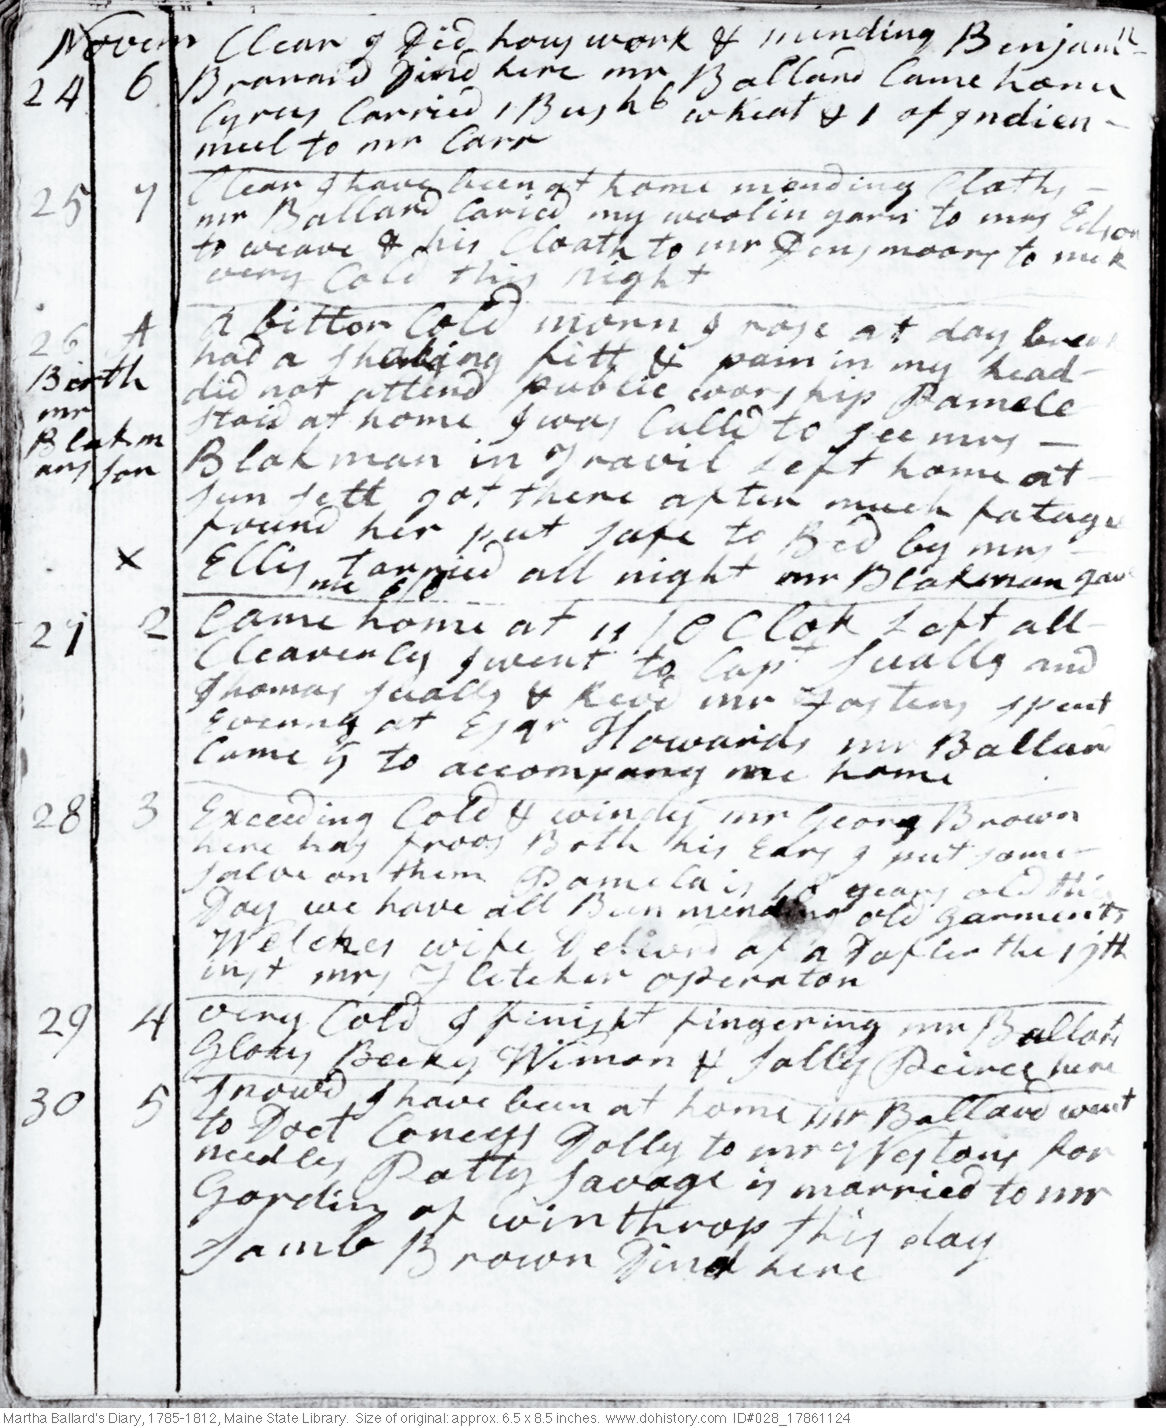 Novem Clear I Did hous work & mending Benjamn
24 6 Branard Dind here mr Ballard Came home
Cyrus Carried 1 Bushl wheat & 1 of Indien
meel to mr Carr
25 7 Clear I have been at home mending Cloaths
mr Ballard Caried my woolin yarn to mrs Edson
to weave & his Cloath to mr Densmoors to mek
very Cold this night
26 A A bitter Cold morn I rose at day break
had a shaking fitt & pain in my head
Birth did not attend publick worship Pamele
mr staid at home I was Calld to see mrs
Blakm Blakman in Gravil Left home at
ans son sun sett got there after much fatage
found her put safe to Bed by mrs
X Ellis tarried all night mr Blakman gave
me 6/0
27 2 Came home at 11 / O Clok Left all
Cleaverly I went to Capt Sualls and
Thomas Sualls & Revd mr Fosters spent
Evenng at Esqr Howards mr Ballard
Came to accompany me home
28 3 Exceeding Cold & windy mr Georg Brown
here has froos Both his Ears I put some
salve on them Pamela is 18 years old this
Day we have all Been mending old garments
Welches wife Deliverd of a Dafter the 17th
inst mrs Fletcher operaton
29 4 very Cold I finisht fingering mr Ballads
Glovs Becky Wiman & Sally Peirce here
30 5 Snowd I have been at home mr Ballard went
to Doct Coneys Dolly to mr Westons for
needles Patty Savage is married to mr
Gordin of winthrop this day
Samll Brown Dind here
Martha Ballard's Diary, 1785-1812, Maine State Library. Size of original: approx. 6.5 x 8.5 inches. www.dohistory.com ID#028_17861124